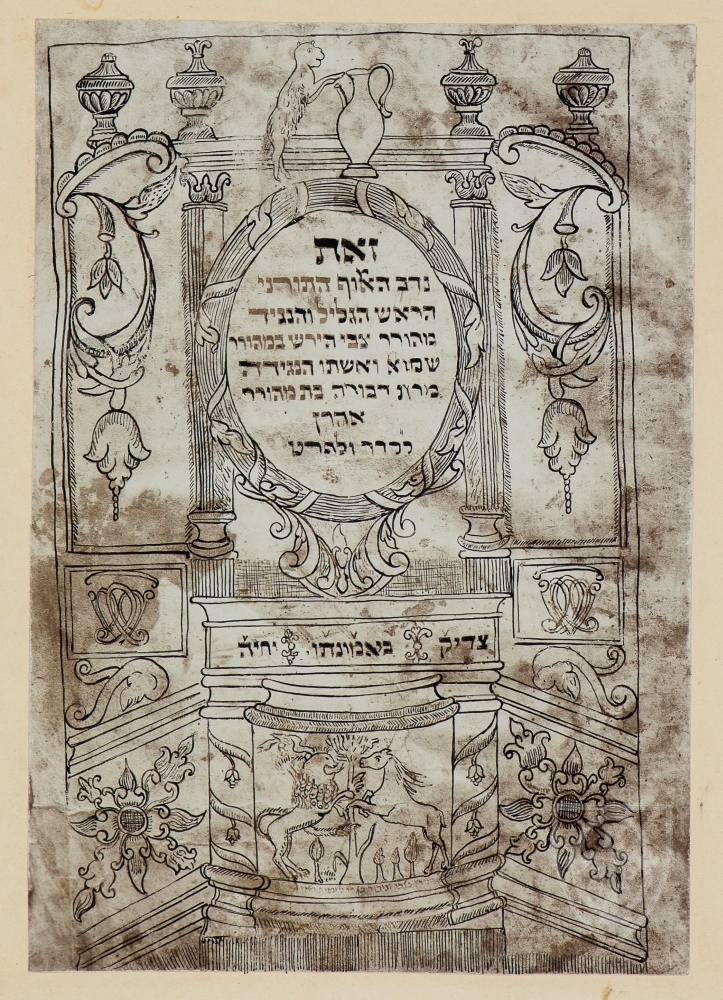 זאת
נדב האלוף התורני
הראש הגליל והנגיד
מהורר צבי הירש במהורר
שמוא ואשתו הנגידה
מרת דבורה בת מהורר
אהרן
לסדר ולפרט
צדיק באמונתו יחיה